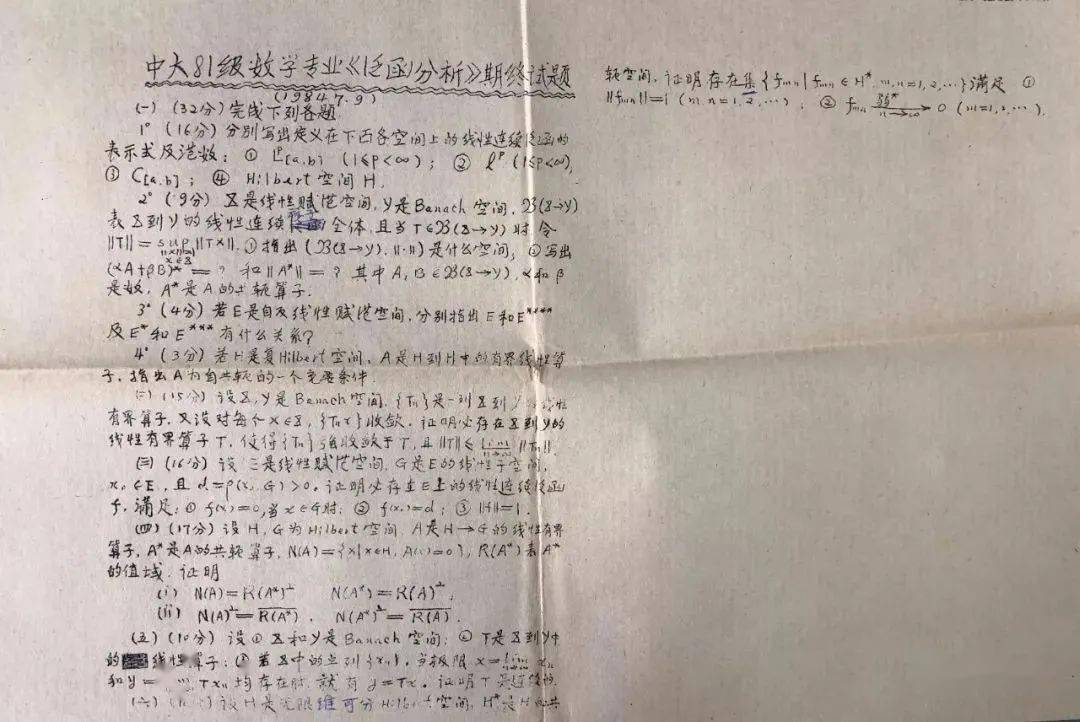 中大81级数学专业《泛函分析》期终试题
(1984.7.9)
(一) (32分) 完成下列各题
1° (16分) 分别写出定义在下面各空间上的线性连续泛函的
表示式及范数：① L^p[a,b] (1≤p<∞)； ② l^p (1≤p<∞)，
③ C[a,b]； ④ Hilbert 空间 H.
2° (9分) X是线性赋范空间, Y是Banach 空间, B(X→Y)
表X到Y的线性连续算子全体, 且当 T∈B(X→Y) 时 令
||T|| = sup ||Tx||. ① 指出 (B(X→Y), ||·||) 是什么空间; ② 写出
(αA+βB)* = ? 和 ||A*|| = ? 其中 A, B ∈ B(X→Y). α和β
是数, A*是A的共轭算子.
3° (4分) 若E是自反线性赋范空间, 分别指出 E 和 E****
及 E* 和 E*** 有什么关系?
4° (3分) 若H是复Hilbert空间, A是H到H中的有界线性算
子, 指出A为自共轭的一个充要条件.
(二) (15分) 设X, Y是Banach空间, {Tn}是一列X到Y的线性
有界算子, 又设对每个 x∈X, {Tnx}收敛. 证明必存在X到Y的
线性有界算子T, 使得{Tn}强收敛于T, 且 ||T|| ≤ lim ||Tn||.
(三) (16分) 设E是线性赋范空间, G是E的线性子空间,
x₀∈E, 且 d=ρ(x₀, G)>0. 证明必存在E上的线性连续泛函
f, 满足: ① f(x)=0, 当 x∈G时; ② f(x₀)=d; ③ ||f||=1.
(四) (17分) 设 H, G 为Hilbert空间, A是H→G的线性有界
算子, A*是A的共轭算子, N(A)={x|x∈H, A(x)=0}, R(A*)表A*
的值域. 证明
(i) N(A)=R(A*)^⊥ N(A*)=R(A)^⊥;
(ii) N(A)^⊥=\overline{R(A*)}, N(A*)^⊥=\overline{R(A)}.
(五) (10分) 设① X和Y是Banach 空间; ② T是X到Y中
的线性算子; ③ 若X中的点列{xn}, 当极限 x=lim xn
和 y= Txn 均存在时, 就有 y=Tx. 证明T是连续
(六) 设H是无限维可分Hilbert空间, H*是H的共
轭空间, 证明存在集{fmn|fmn∈H*, m,n=1,2,…}满足 ①
||fmn||=1 (m,n=1,2,…); ② fmn 弱* n→∞ 0 (m=1,2,…).